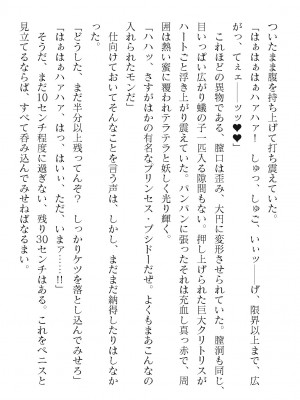 ついたまま腹を持ち上げて打ち震えていた。
「はぁはぁはぁハァハァ！　しゅっ、しゅご、いぃッ――げ、限界以上まで、広
がっ、てぇェ――ッッ♥♥」
これほどの異物である、膣口は歪み、大円に変形させられていた。膣洞も同じ、
目いっぱい広がり蟻の子一匹入る隙間もない。押し上げられた巨大クリトリスが
ハートごと浮き上がり震えていた。パンパンに張ったそれは充血し真っ赤で、周
囲は熱い蜜に覆われてテラテラと妖しく光り輝く。
「ハハッ、さすがはかの有名なプリンセス・ブシドーだぜ。よくもまあこんなの
入れられたモンだ」
仕向けておいてそんなことを言う声は、しかし、まだまだ納得したりはしなか
「どうした、まだ半分以上残ってんぞ？　しっかりケツを落とし込んでみせろ」
「はぁはぁハァハァ、は、はいい、ただ、いまァ……!!」
そうだ、まだ10センチ程度に過ぎない、残り30センチはある。これをペニスと
見立てるならば、すべて呑み込んでみせねばなるまい。